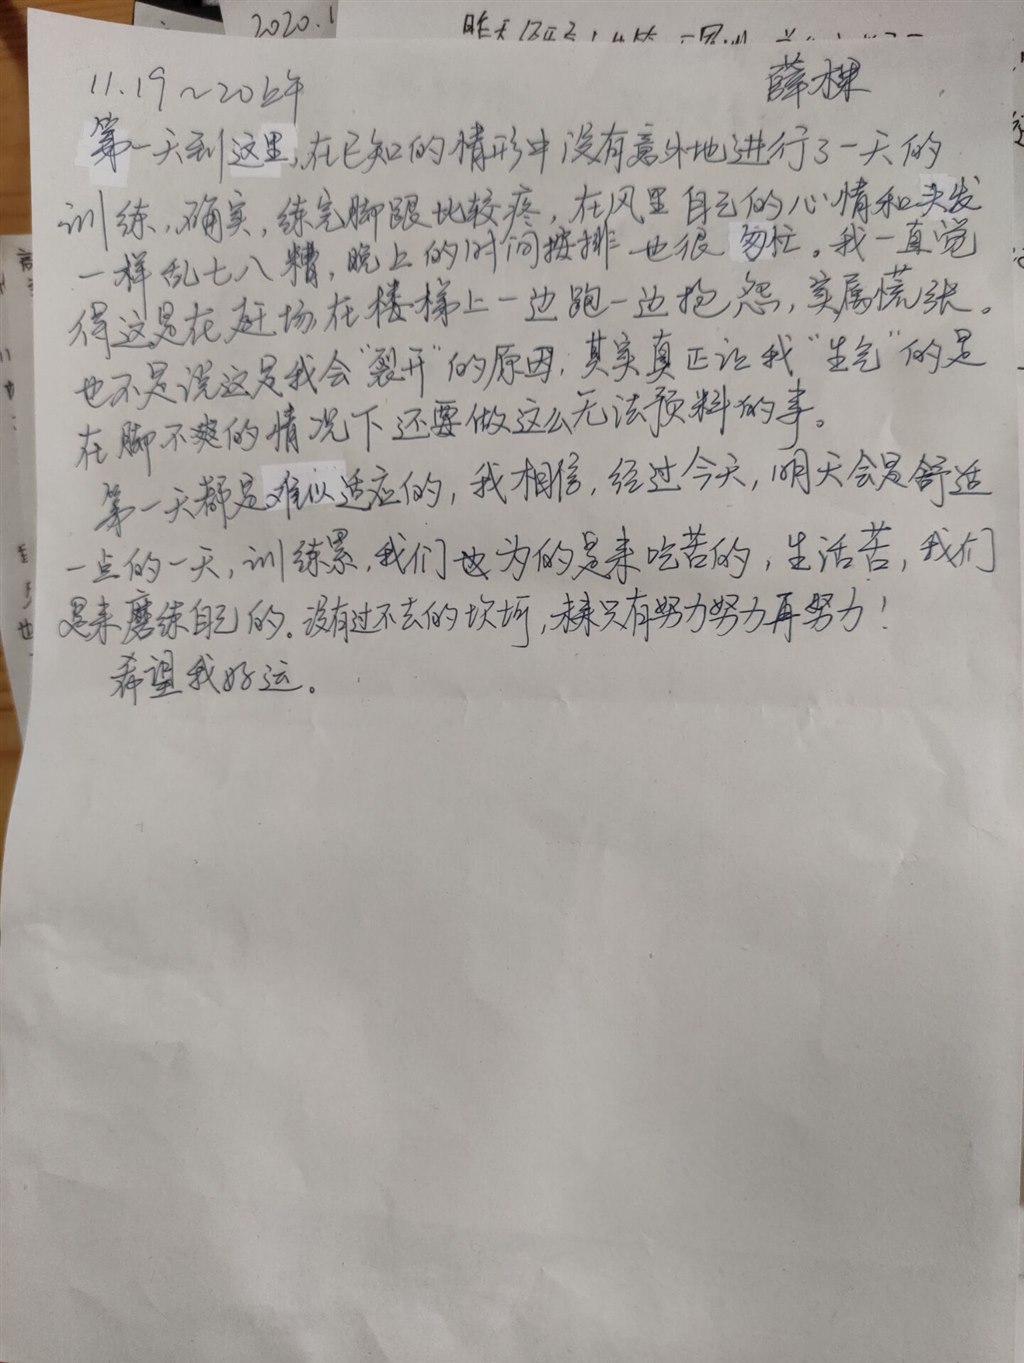 2020.1
昨天
11.19～20上午
薛棵
第一天到这里,在已知的情形中没有意外地进行了一天的
训练,确实,练完脚跟比较疼,在风里自己的心情和头发
一样乱七八糟,晚上的时间按排也很匆忙。我一直觉
得这是在赶场,在楼梯上一边跑一边抱怨,实属慌张。
也不是说这是我会"裂开"的原因,其实真正让我"生气"的是
在脚不爽的情况下还要做这么无法预料的事。
第一天都是难以适应的,我相信,经过今天,明天会是舒适
一点的一天,训练累,我们也为的是来吃苦的,生活苦,我们
是来磨练自己的。没有过不去的坎坷,未来只有努力努力再努力!
希望我好运。